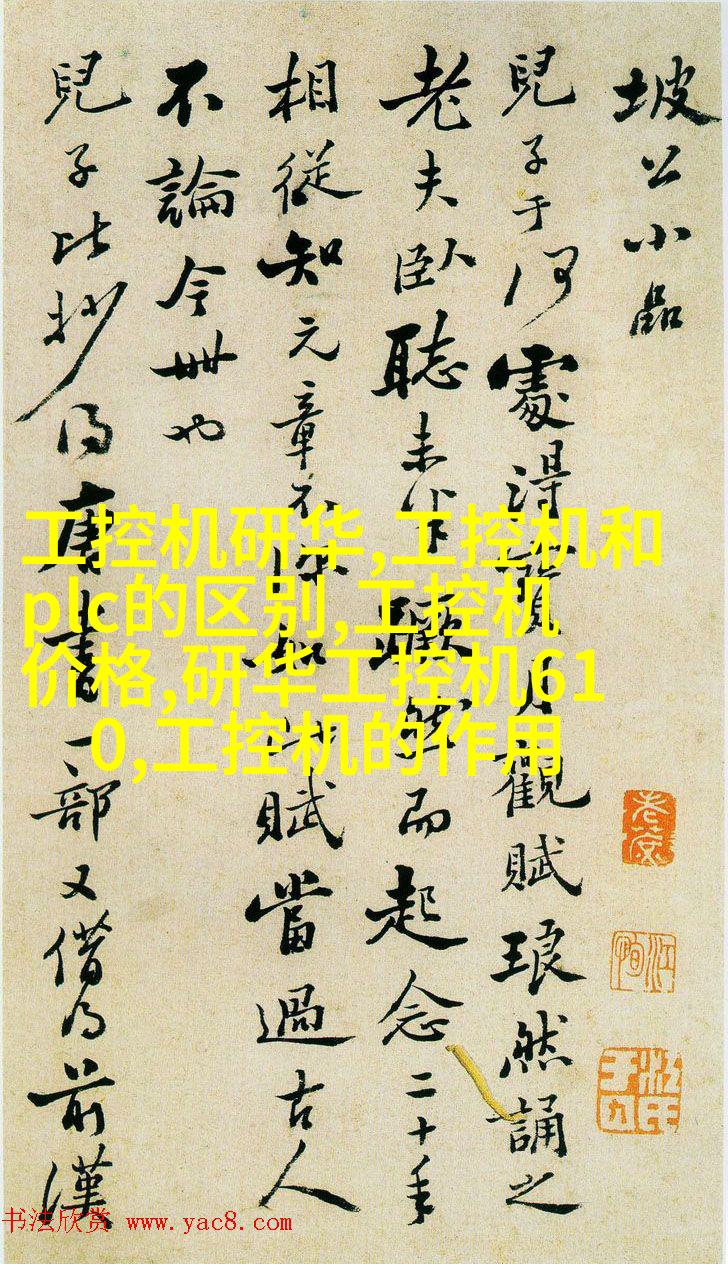 坡公小品
兒子于何處得寶月觀賦琅然誦之
老夫臥聽未半躍然而起念二十年
相從知元章不深如此賦當過古人
不論今世也
兒子比抄得唐書一部又借得前漢
工控机研华,工控机和
plc的区别,工控机
价格,研华工控机61
0,工控机的作用
书法欣赏 www.yac8.com